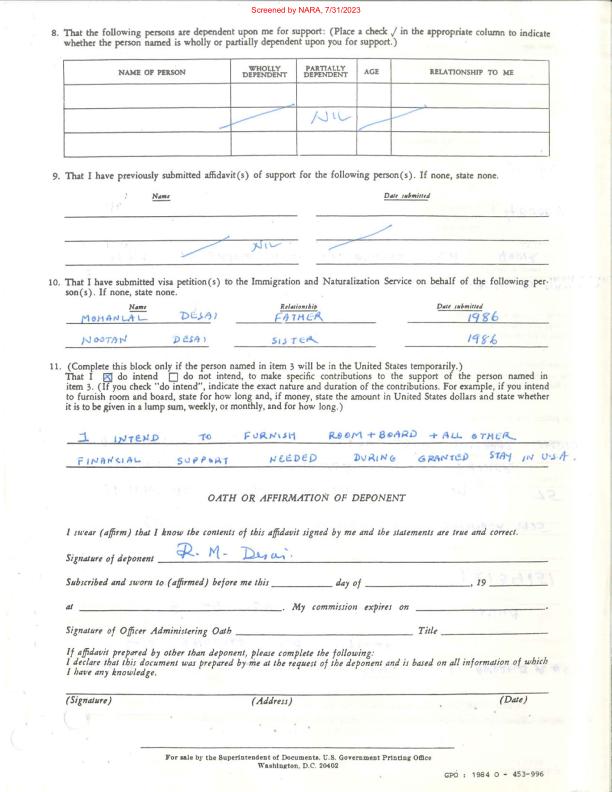 Screened by NARA, 7/31/2023
8. That the following persons are dependent upon me for support: (Place a check √ in the appropriate column to indicate
whether the person named is wholly or partially dependent upon you for support.)
NAME OF PERSON WHOLLY DEPENDENT PARTIALLY DEPENDENT AGE RELATIONSHIP TO ME
NIL
9. That I have previously submitted affidavit(s) of support for the following person(s). If none, state none.
Name Date submitted
NIL
10. That I have submitted visa petition(s) to the Immigration and Naturalization Service on behalf of the following per-
son(s). If none, state none.
Name Relationship Date submitted
MOHANLAL DESAI FATHER 1986
NOOTAN DESAI SISTER 1986
11. (Complete this block only if the person named in item 3 will be in the United States temporarily.)
That I ☒ do intend ☐ do not intend, to make specific contributions to the support of the person named in
item 3. (If you check "do intend", indicate the exact nature and duration of the contributions. For example, if you intend
to furnish room and board, state for how long and, if money, state the amount in United States dollars and state whether
it is to be given in a lump sum, weekly, or monthly, and for how long.)
I INTEND TO FURNISH ROOM + BOARD + ALL OTHER
FINANCIAL SUPPORT NEEDED DURING GRANTED STAY IN U.S.A.
OATH OR AFFIRMATION OF DEPONENT
I swear (affirm) that I know the contents of this affidavit signed by me and the statements are true and correct.
Signature of deponent R. M. Desai.
Subscribed and sworn to (affirmed) before me this day of , 19
at . My commission expires on .
Signature of Officer Administering Oath Title
If affidavit prepared by other than deponent, please complete the following:
I declare that this document was prepared by me at the request of the deponent and is based on all information of which
I have any knowledge.
(Signature) (Address) (Date)
For sale by the Superintendent of Documents, U.S. Government Printing Office
Washington, D.C. 20402
GPO : 1984 O - 453-996